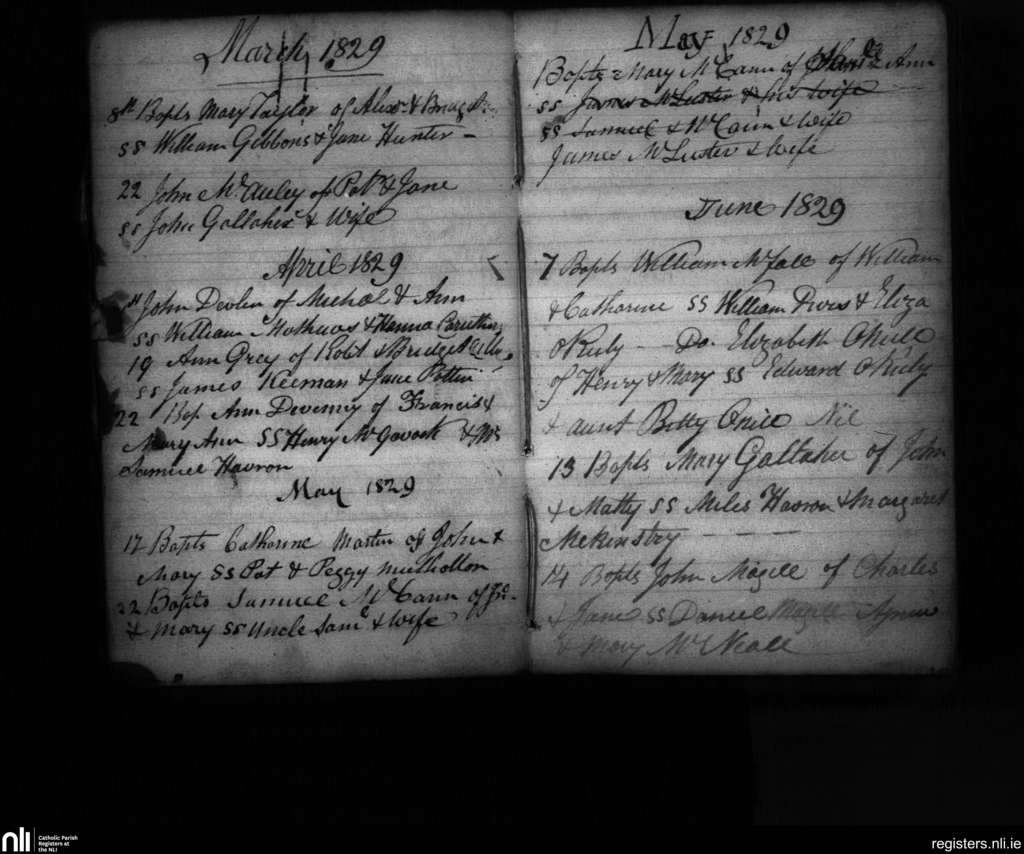 March 1829
8th Bapts Mary Taylor of Alexr & Bridget
SS William Gibbons & Jane Hunter –
22 John McAuley of Pat & Jane
SS John Gallaher & Wife
April 1829
John Devlin of Michael & Ann
SS William Mathews & Hanna
19 Ann Grey of Robt & Bridget
SS James Keenan & Jane
22 Bap Ann Devenny of Francis &
Mary Ann SS Henry McGavock & Mrs
Samuel Havron
May 1829
17 Bapts Catharine Martin of John &
Mary SS Pat & Peggy Mulhollon
22 Bapts Samuel McCann of
& Mary SS Uncle Saml & Wife
May 1829
Bapts Mary McCann of & Ann
SS James McLuster & his wife
SS Samuel & McCann & Wife
James McLuster & Wife
June 1829
7 Bapts William McFall of William
& Catharine SS William & Eliza
ORiely – Do. Elizabeth ONeill
of Henry & Mary SS Edward ORiely
& aunt Betty Oneill
13 Bapts Mary Gallaher of John
& Matty SS Miles Havron & Margaret
McKinstry – – – –
14 Bapts John Magill of Charles
& Jane SS Daniel Magill Agnew
& Mary McNeall
nli
Catholic Parish
Registers at
the NLI
registers.nli.ie